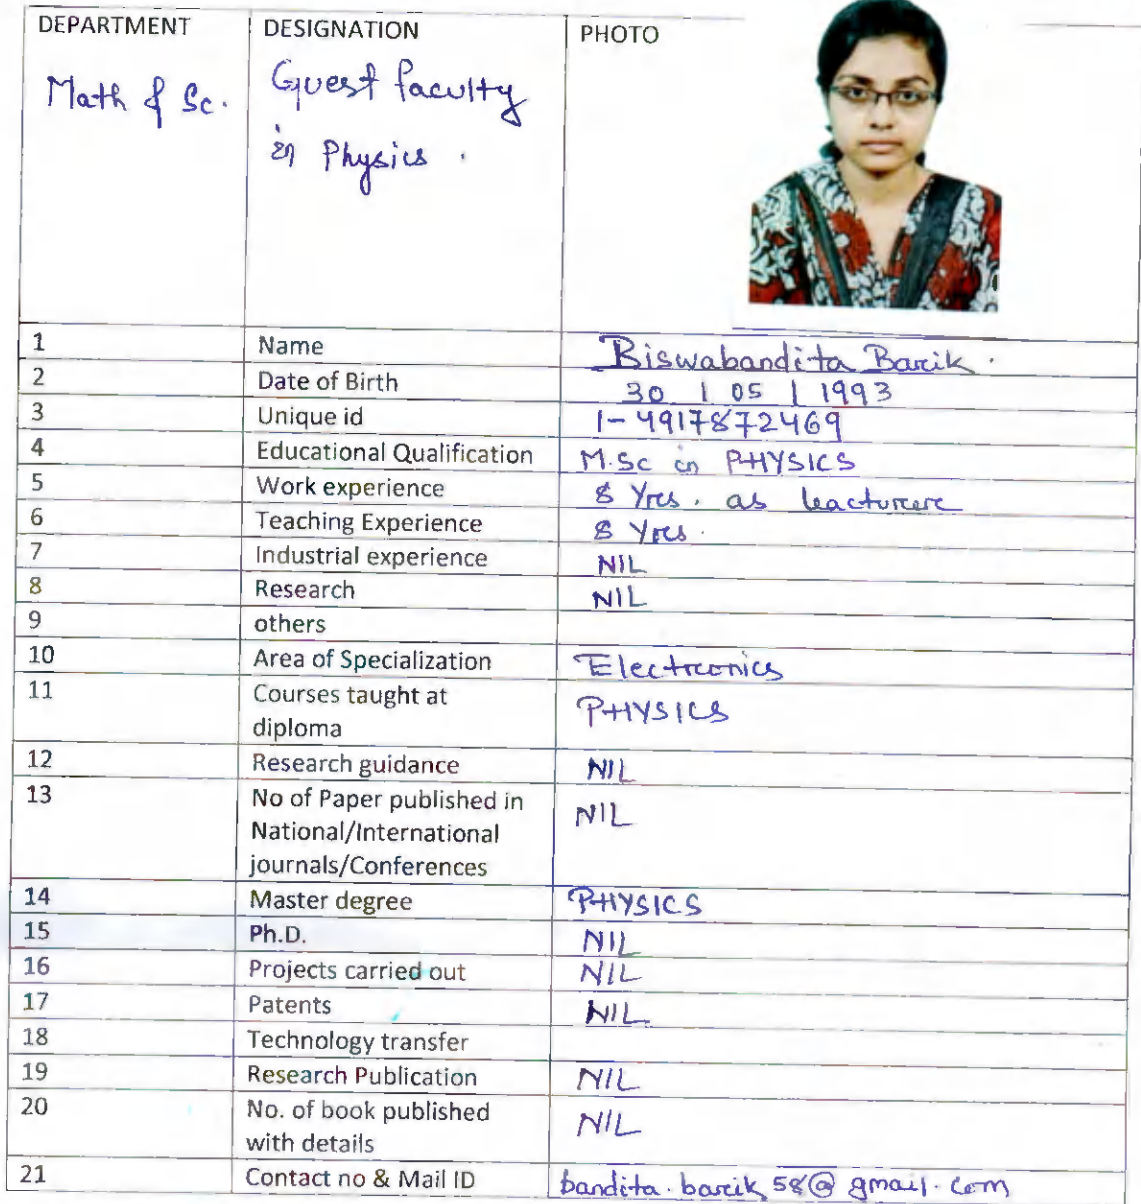 DEPARTMENT DESIGNATION PHOTO
Math & Sc. Guest faculty
in Physics.
1 Name Biswabandita Barik.
2 Date of Birth 30 | 05 | 1993
3 Unique id 1-4917872469
4 Educational Qualification M.Sc in PHYSICS
5 Work experience 8 Yrs. as leacturere
6 Teaching Experience 8 Yrs.
7 Industrial experience NIL
8 Research NIL
9 others
10 Area of Specialization Electronics
11 Courses taught at
diploma PHYSICS
12 Research guidance NIL
13 No of Paper published in
National/International
journals/Conferences NIL
14 Master degree PHYSICS
15 Ph.D. NIL
16 Projects carried out NIL
17 Patents NIL
18 Technology transfer
19 Research Publication NIL
20 No. of book published
with details NIL
21 Contact no & Mail ID bandita.barik58@gmail.com